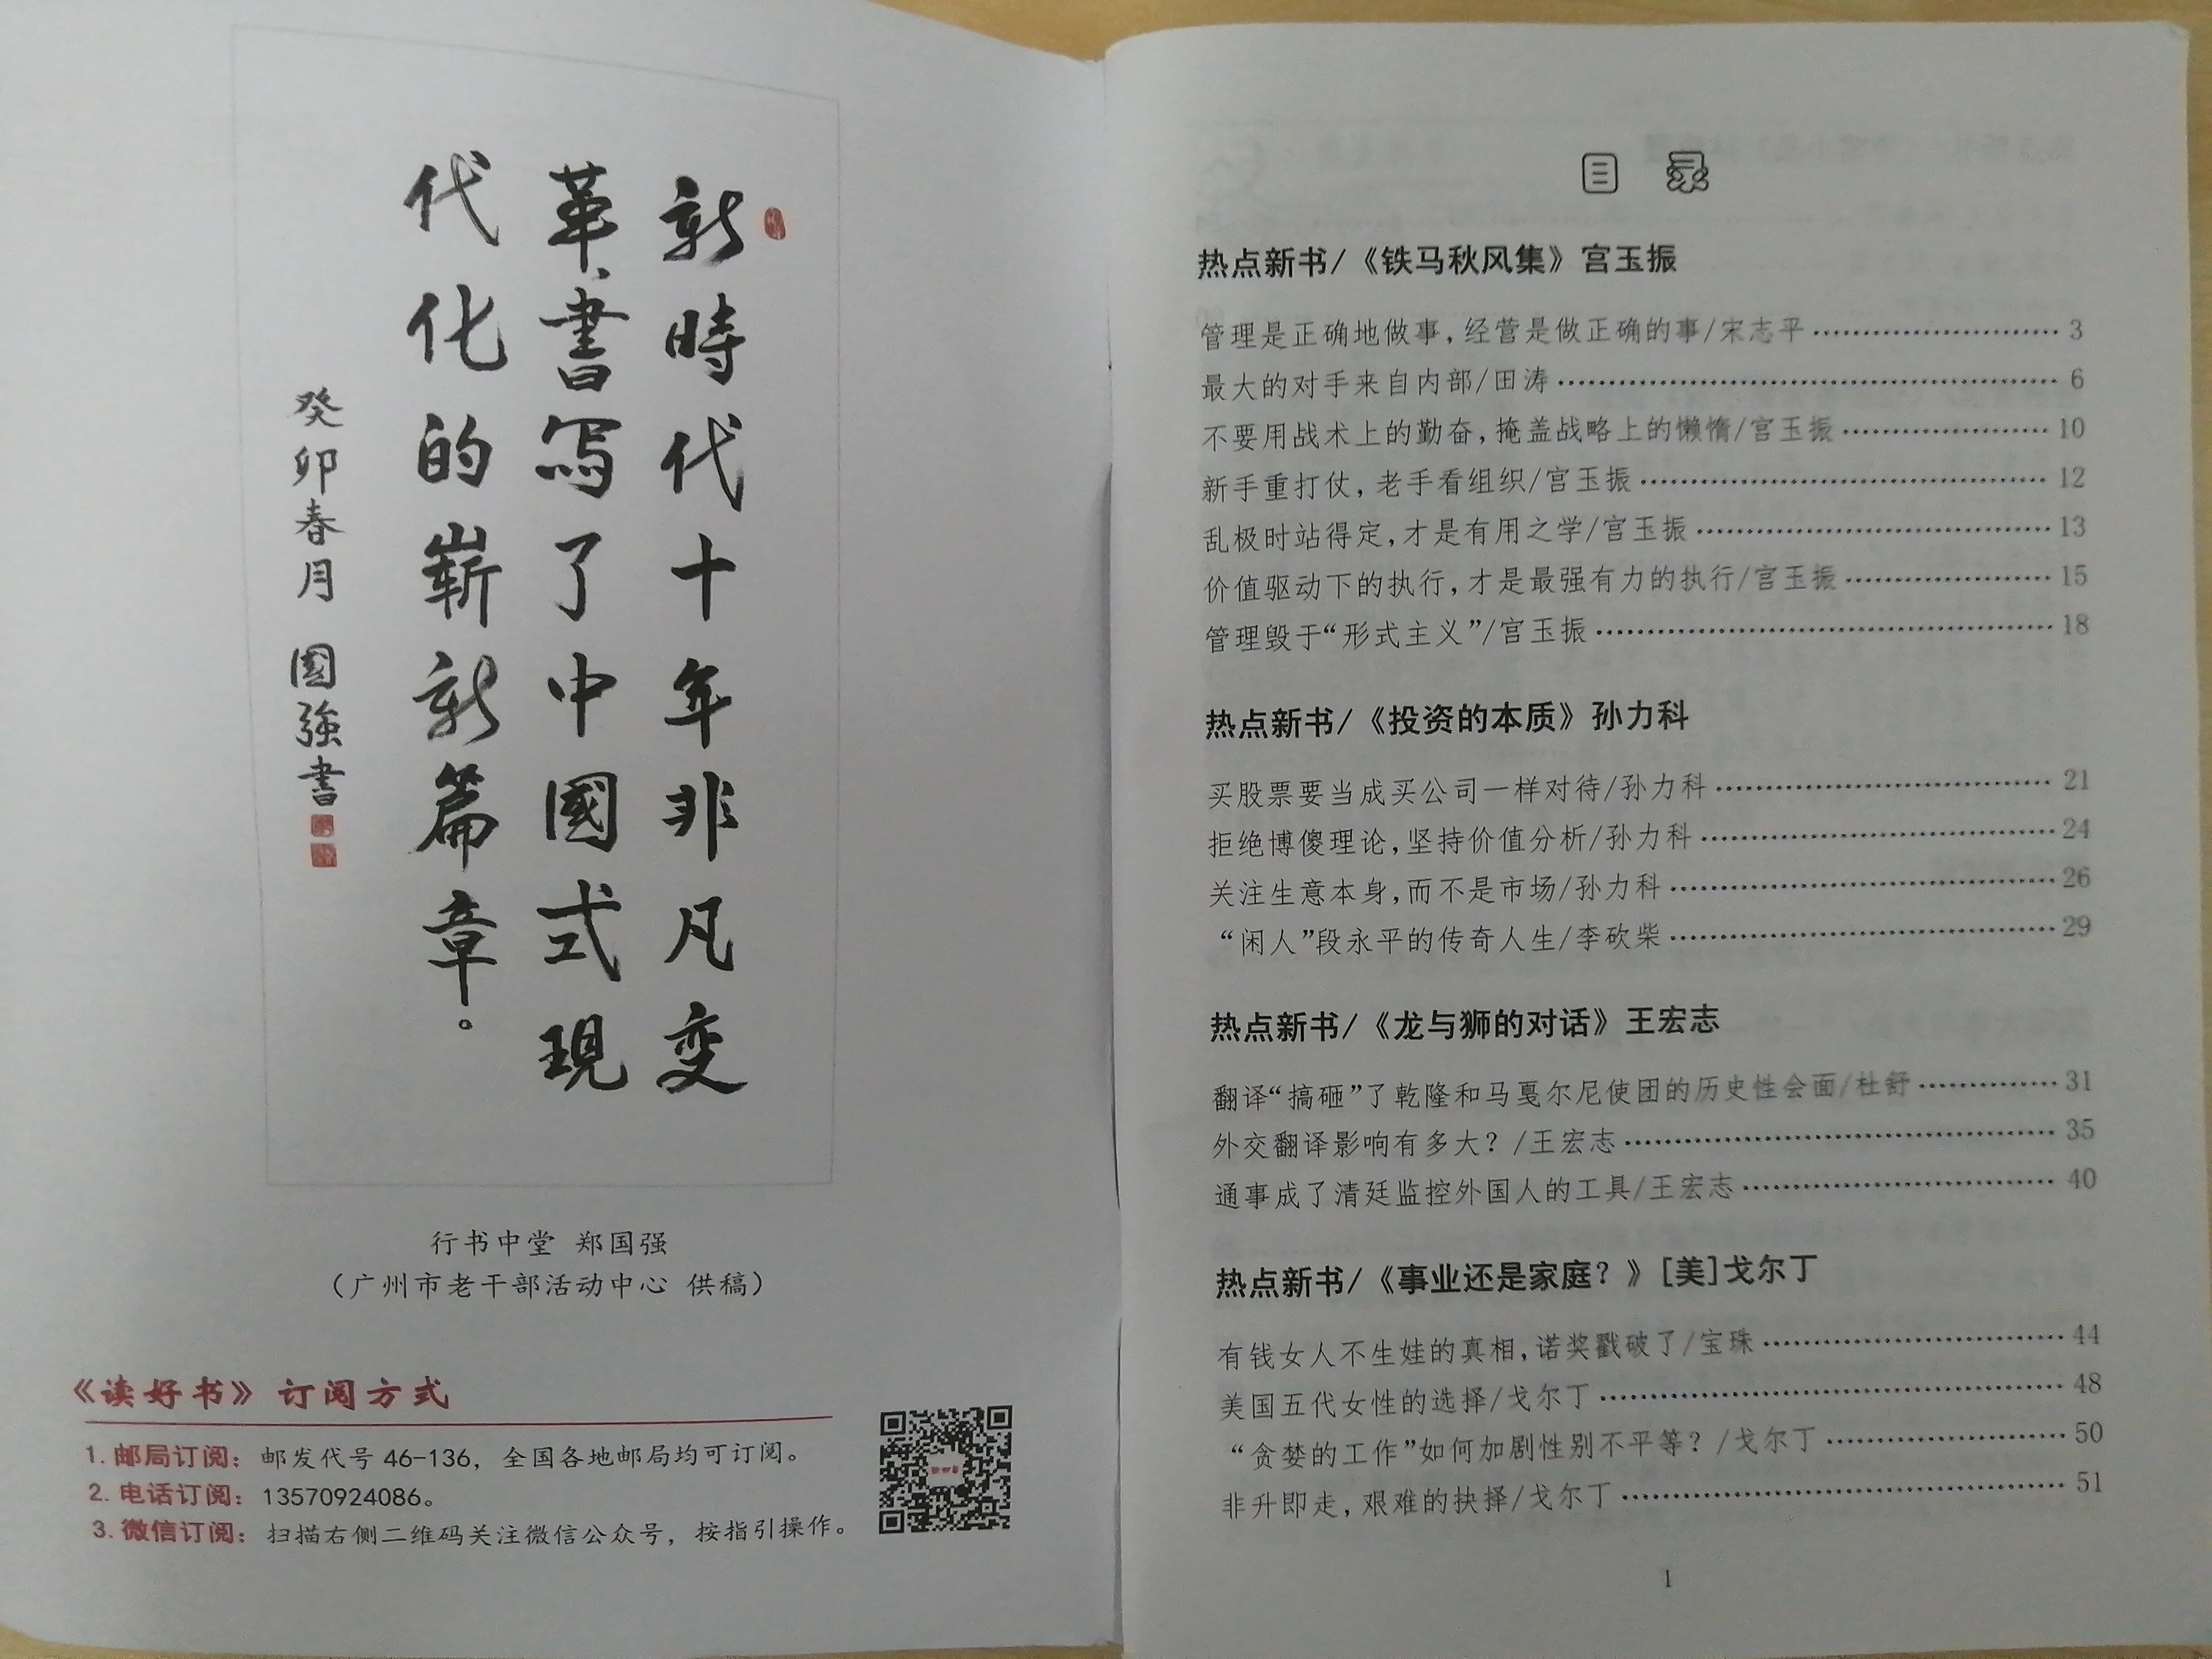 新時代十年非凡变
革、書写了中國式現
代化的嶄新篇章。
癸卯春月 國強書
行书中堂 郑国强
（广州市老干部活动中心 供稿）
《读好书》订阅方式
1. 邮局订阅：邮发代号 46-136，全国各地邮局均可订阅。
2. 电话订阅：13570924086。
3. 微信订阅：扫描右侧二维码关注微信公众号，按指引操作。
目 录
热点新书/《铁马秋风集》宫玉振
管理是正确地做事，经营是做正确的事/宋志平 3
最大的对手来自内部/田涛 6
不要用战术上的勤奋，掩盖战略上的懒惰/宫玉振 10
新手重打仗，老手看组织/宫玉振 12
乱极时站得定，才是有用之学/宫玉振 13
价值驱动下的执行，才是最强有力的执行/宫玉振 15
管理毁于“形式主义”/宫玉振 18
热点新书/《投资的本质》孙力科
买股票要当成买公司一样对待/孙力科 21
拒绝博傻理论，坚持价值分析/孙力科 24
关注生意本身，而不是市场/孙力科 26
“闲人”段永平的传奇人生/李砍柴 29
热点新书/《龙与狮的对话》王宏志
翻译“搞砸”了乾隆和马戛尔尼使团的历史性会面/杜舒 31
外交翻译影响有多大？/王宏志 35
通事成了清廷监控外国人的工具/王宏志 40
热点新书/《事业还是家庭？》[美]戈尔丁
有钱女人不生娃的真相，诺奖戳破了/宝珠 44
美国五代女性的选择/戈尔丁 48
“贪婪的工作”如何加剧性别不平等？/戈尔丁 50
非升即走，艰难的抉择/戈尔丁 51
1